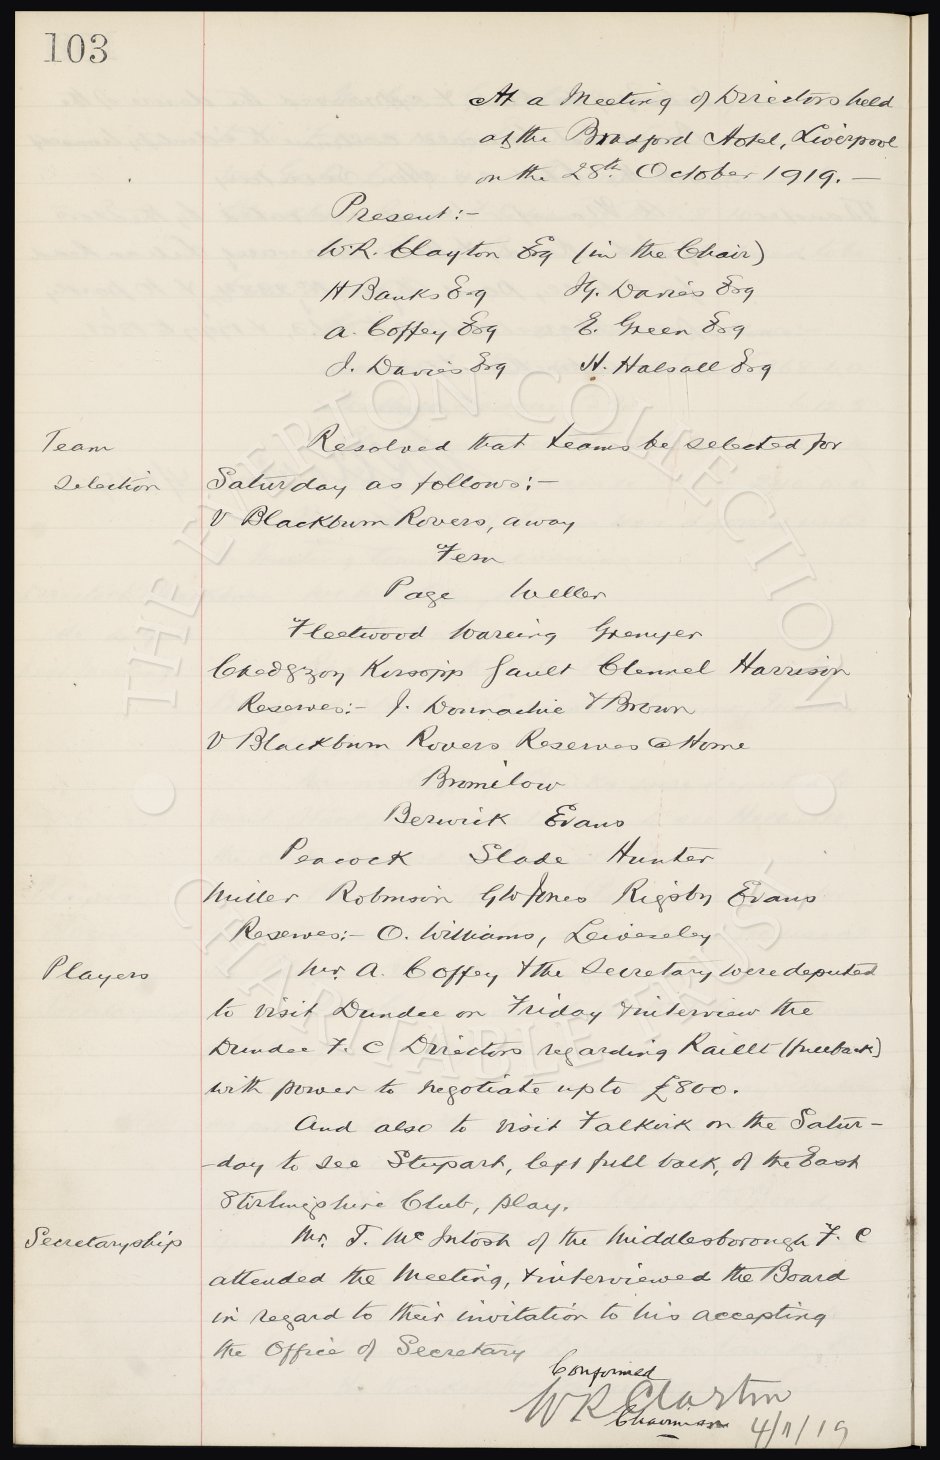 103
At a Meeting of Directors held
at the Bradford Hotel, Liverpool
on the 28th October 1919. —
Present :-
W.R. Clayton Esq (in the Chair)
H Banks Esq Jy. Davies Esq
A. Coffey Esq E. Green Esq
J. Davies Esq H. Halsall Esq
Team Resolved that teams be selected for
selection Saturday as follows :-
V Blackburn Rovers, away
Fern
Page Weller
Fleetwood Wareing Grenyer
Chedgzoy Kirsopp Gault Clennel Harrison
Reserves :- J. Donnachie & Brown
V Blackburn Rovers Reserves @ Home
Bromilow
Berwick Evans
Peacock Slade Hunter
Miller Robinson GW Jones Rigsby Evans
Reserves :- O. Williams, Leivesley
Players Mr. A. Coffey & the Secretary were deputed
to visit Dundee on Friday & interview the
Dundee F. C Directors regarding Raillt (fullback)
with power to negotiate up to £800.
And also to visit Falkirk on the Satur-
-day to see Stupart, left full back, of the East
Stirlingshire Club, play.
Secretaryship Mr. T. McIntosh of the Middlesborough F. C
attended the Meeting, & interviewed the Board
in regard to their invitation to his accepting
the Office of Secretary
Confirmed
WR Clayton
Chairman 4/11/19
THE EVERTON COLLECTION
CHARITABLE TRUST